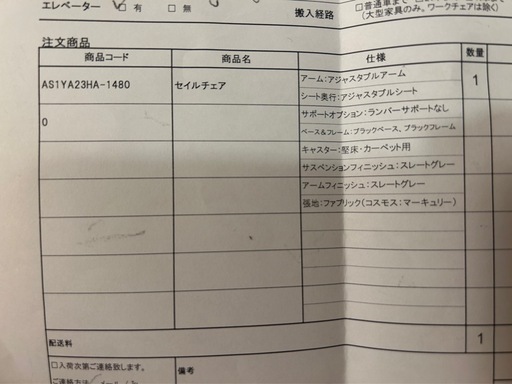 エレベーター □ 有 □ 無 搬入経路
(大型家具のみ。ワークチェアは除く)
注文商品
商品コード 商品名 仕様 数量
AS1YA23HA-1480 セイルチェア アーム:アジャスタブルアーム 1
シート奥行:アジャスタブルシート
0 サポートオプション:ランバーサポートなし
ベース&フレーム:ブラックベース、ブラックフレーム
キャスター:堅床・カーペット用
サスペンションフィニッシュ:スレートグレー
アームフィニッシュ:スレートグレー
張地:ファブリック(コスモス:マーキュリー)
配送料 1
□入荷次第ご連絡致します。 備考